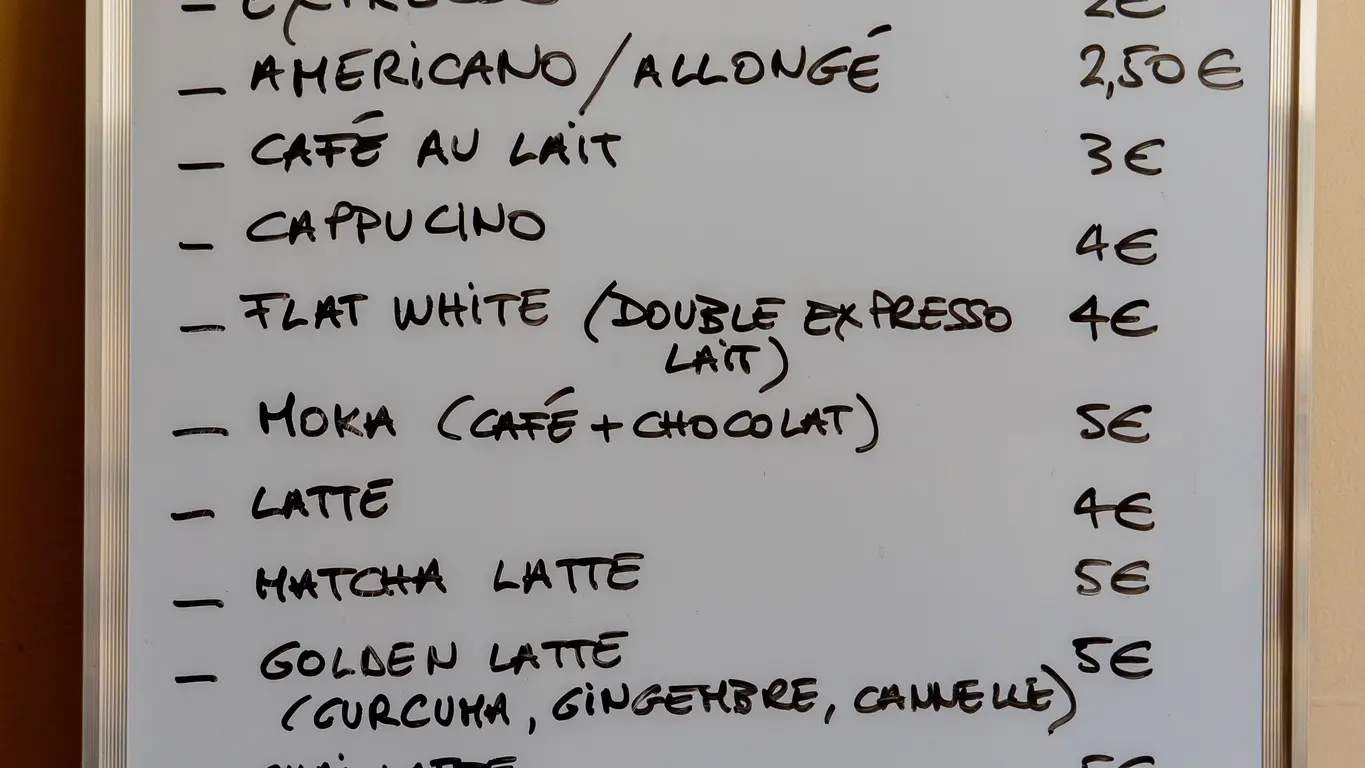 - EXPRESSO 2€
- AMERICANO/ALLONGÉ 2,50€
- CAFÉ AU LAIT 3€
- CAPPUCINO 4€
- FLAT WHITE (DOUBLE EXPRESSO 4€
LAIT)
- MOKA (CAFÉ+CHOCOLAT) 5€
- LATTE 4€
- MATCHA LATTE 5€
- GOLDEN LATTE 5€
(CURCUMA, GINGEMBRE, CANNELLE)
CHAI LATTE 5€